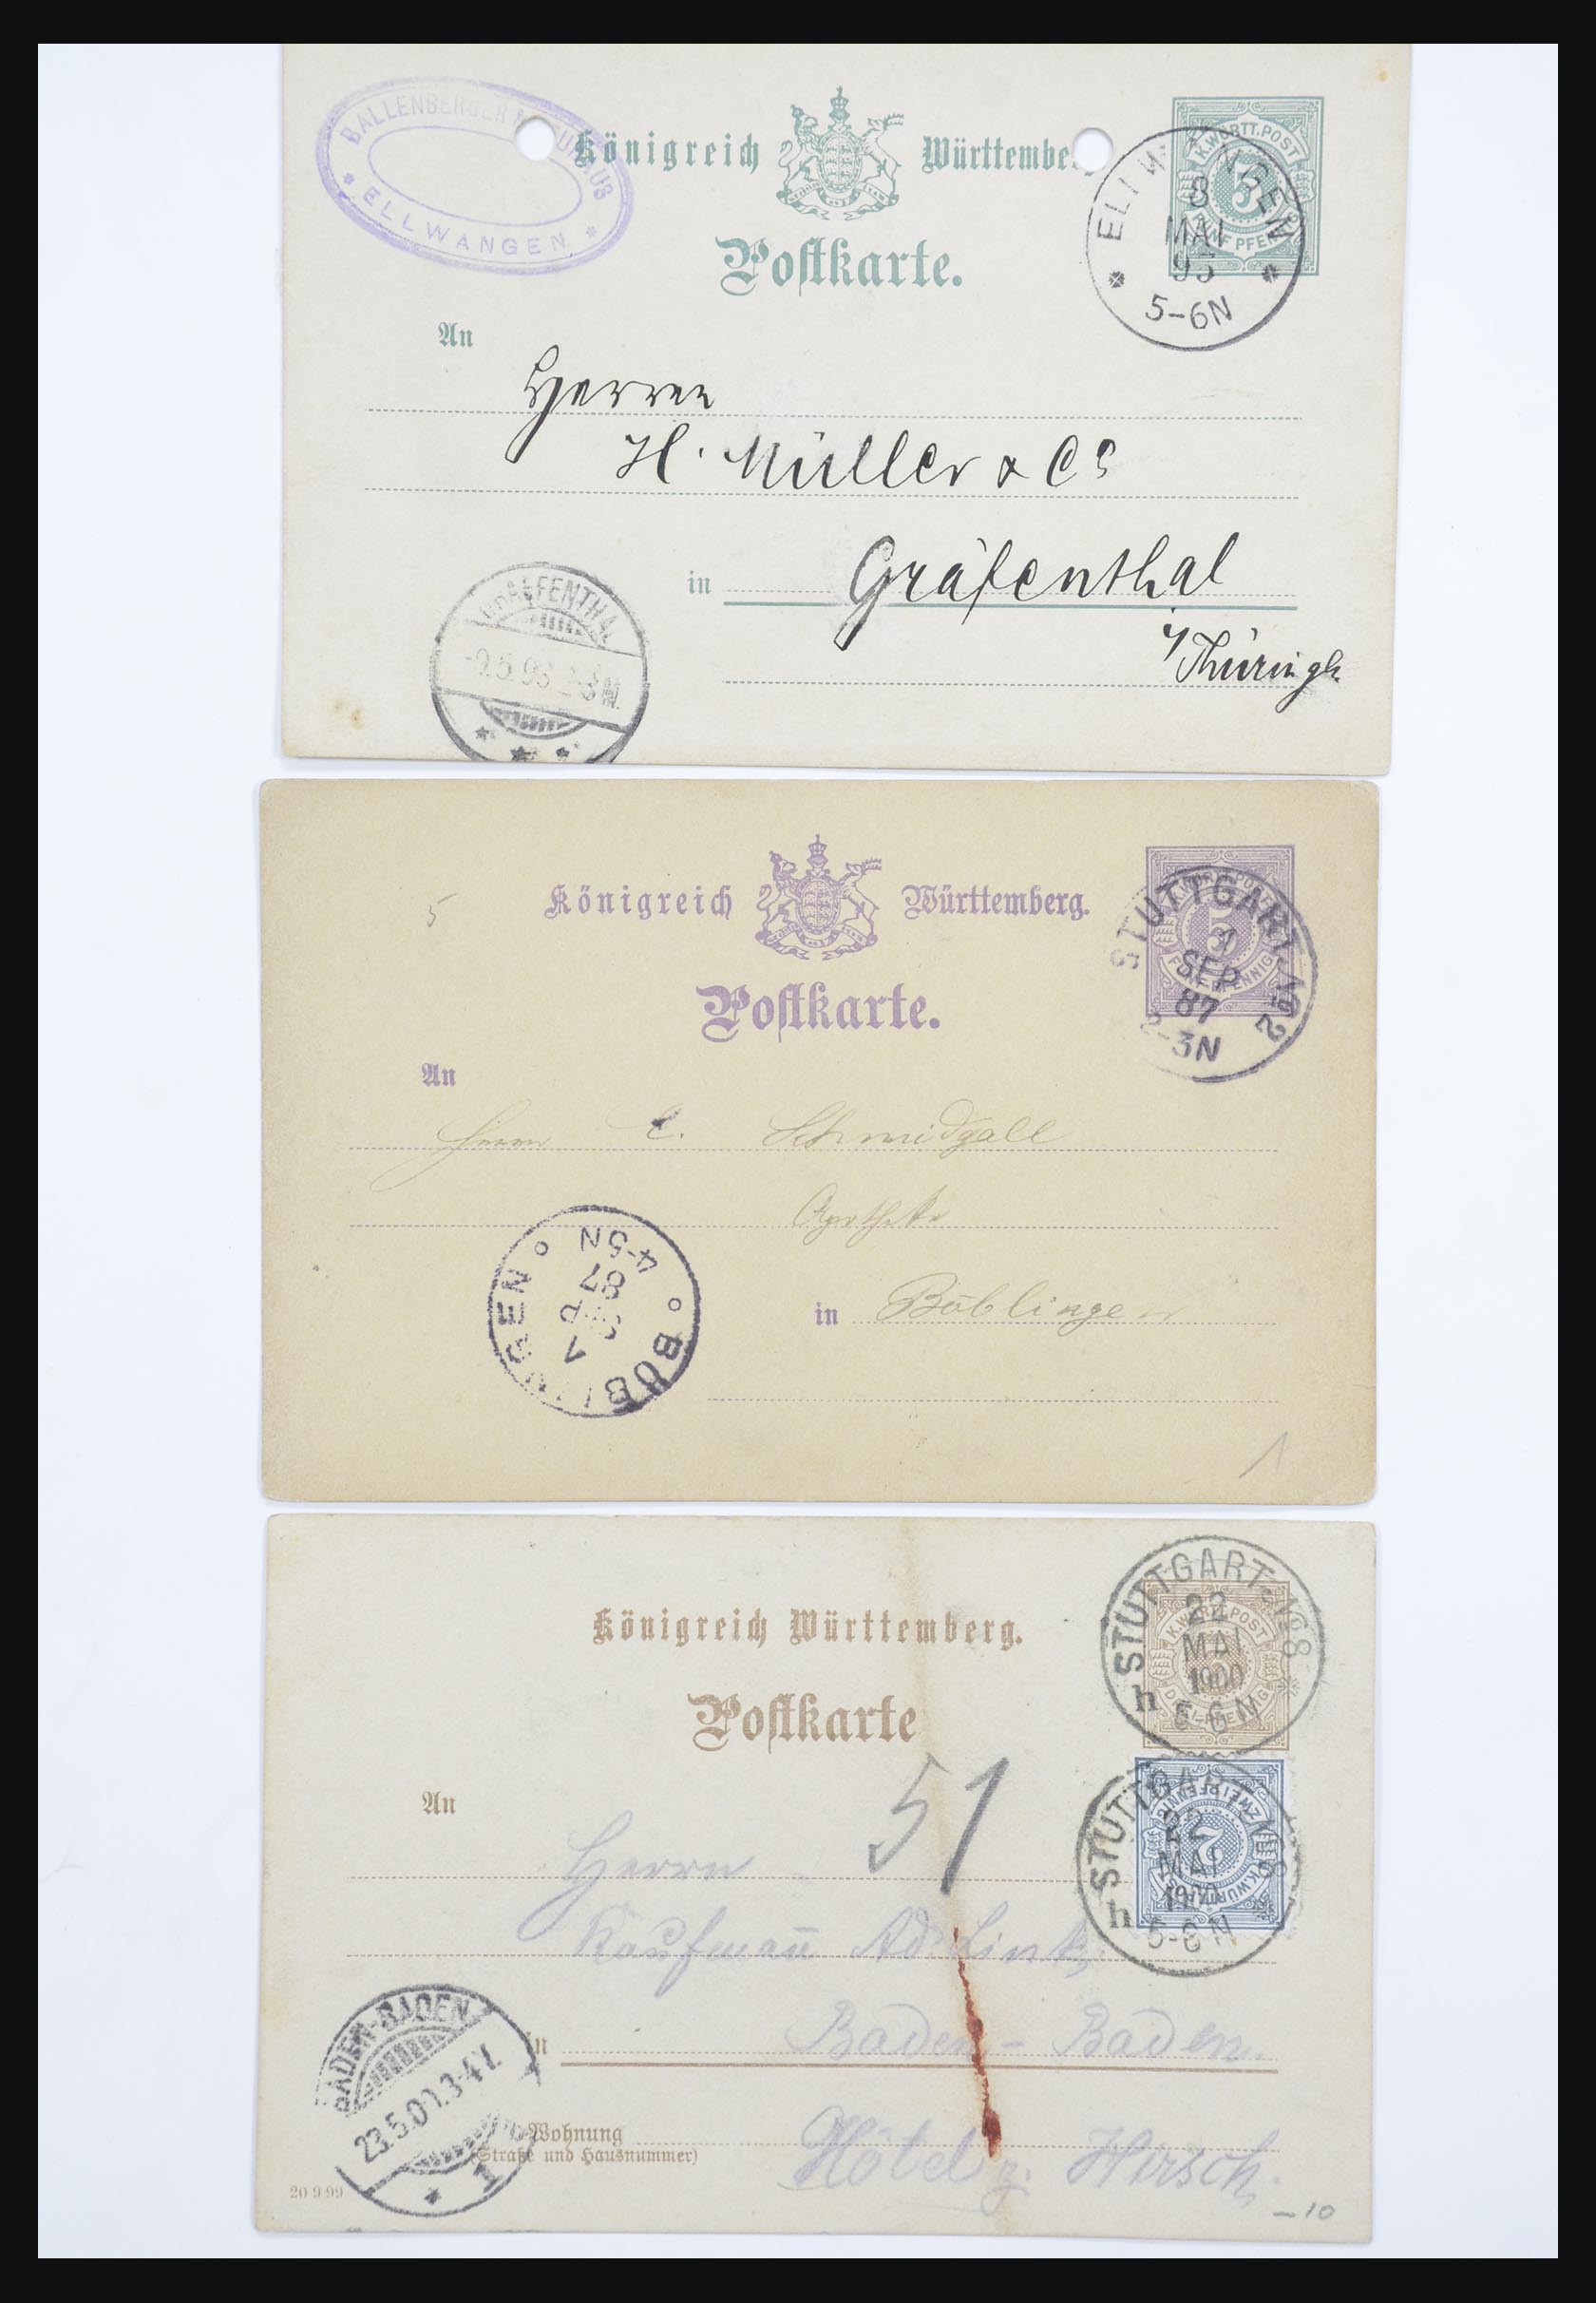 BALLENBERGER
ELLWANGEN
Königreich Württembe
K.WÜRTT.POST
5
FÜNF PFENNIG
ELLWANGEN
8
MAI
93
5-6N
Postkarte.
An
Herren
H. Müller & Co
in Gräfenthal
i/Thüringen
GRAEFENTHAL
9.5.93
Königreich Württemberg.
5
5
STUTTGART No 2
SEP
87
2-3N
FÜNF PFENNIG
Postkarte.
An
Herrn E. Schmidgall
Apotheke
in Böblingen
BÖBLINGEN
SEP
87
4-5N
1
Königreich Württemberg.
Postkarte
K.WÜRTT.POST
DREI PFENNIG
STUTTGART No 8
22
MAI
1900
h 5-6N
51
2
ZWEI PFENNIG
K.WÜRTT.POST
STUTTGART No 8
22
MAI
1900
h 5-6N
An
Herrn
Kaufmann Ad. Link,
in Baden-Baden.
BADEN-BADEN
23.5.00.3-4V.
1
Wohnung
(Straße und Hausnummer)
Hôtel z. Hirsch.
20 9 99
10